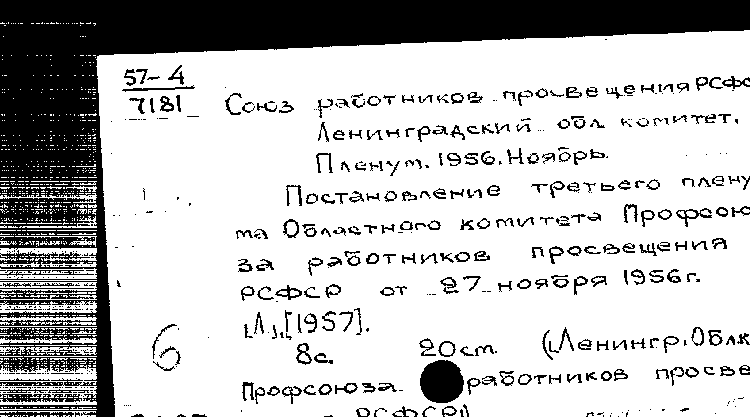 57-4
7181
Союз работников просвещения РСФС
Ленинградский обл. комитет.
Пленум. 1956. Ноябрь.
Постановление третьего плену
ма Областного комитета Профсою
за работников просвещения
РСФСР от 27 ноября 1956 г.
Л., [1957].
6
8 с. 20 см. (Ленингр. Обл. к
Профсоюза работников просве
РСФСР)